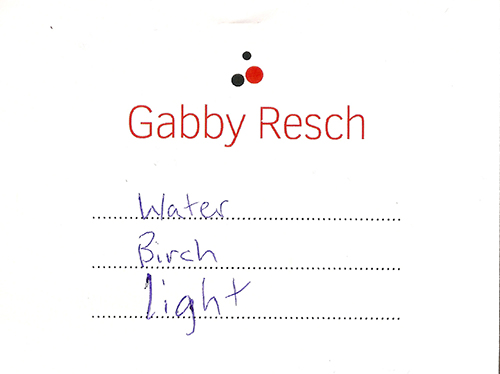 Gabby Resch
Water
Birch
light